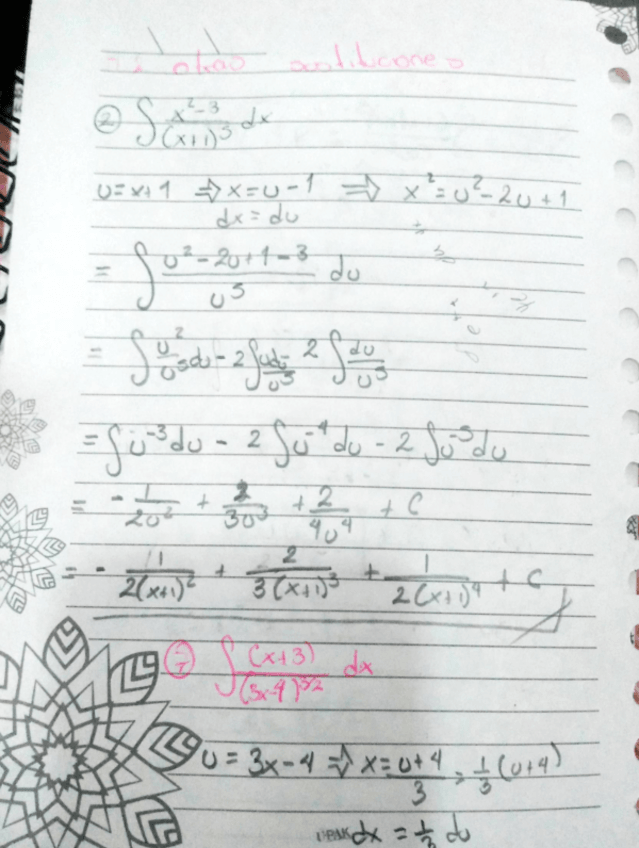 otras sustituciones
② ∫ x²-3 / (x+1)³ dx
u = x+1 ⇒ x = u-1 ⇒ x² = u² - 2u + 1
dx = du
= ∫ u² - 2u + 1 - 3 / u⁵ du
= ∫ u²/u⁵ du - 2 ∫ u du/u⁵ 2 ∫ du/u⁵
= ∫ u⁻³ du - 2 ∫ u⁻⁴ du - 2 ∫ u⁻⁵ du
= - 1/2u² + 2/3u³ + 2/4u⁴ + C
= - 1/2(x+1)² + 2/3(x+1)³ + 1/2(x+1)⁴ + C
∫ (x+3) / (3x-4)^3/2 dx
u = 3x-4 ⇒ x = u+4 / 3 = 1/3 (u+4)
dx = 1/3 du